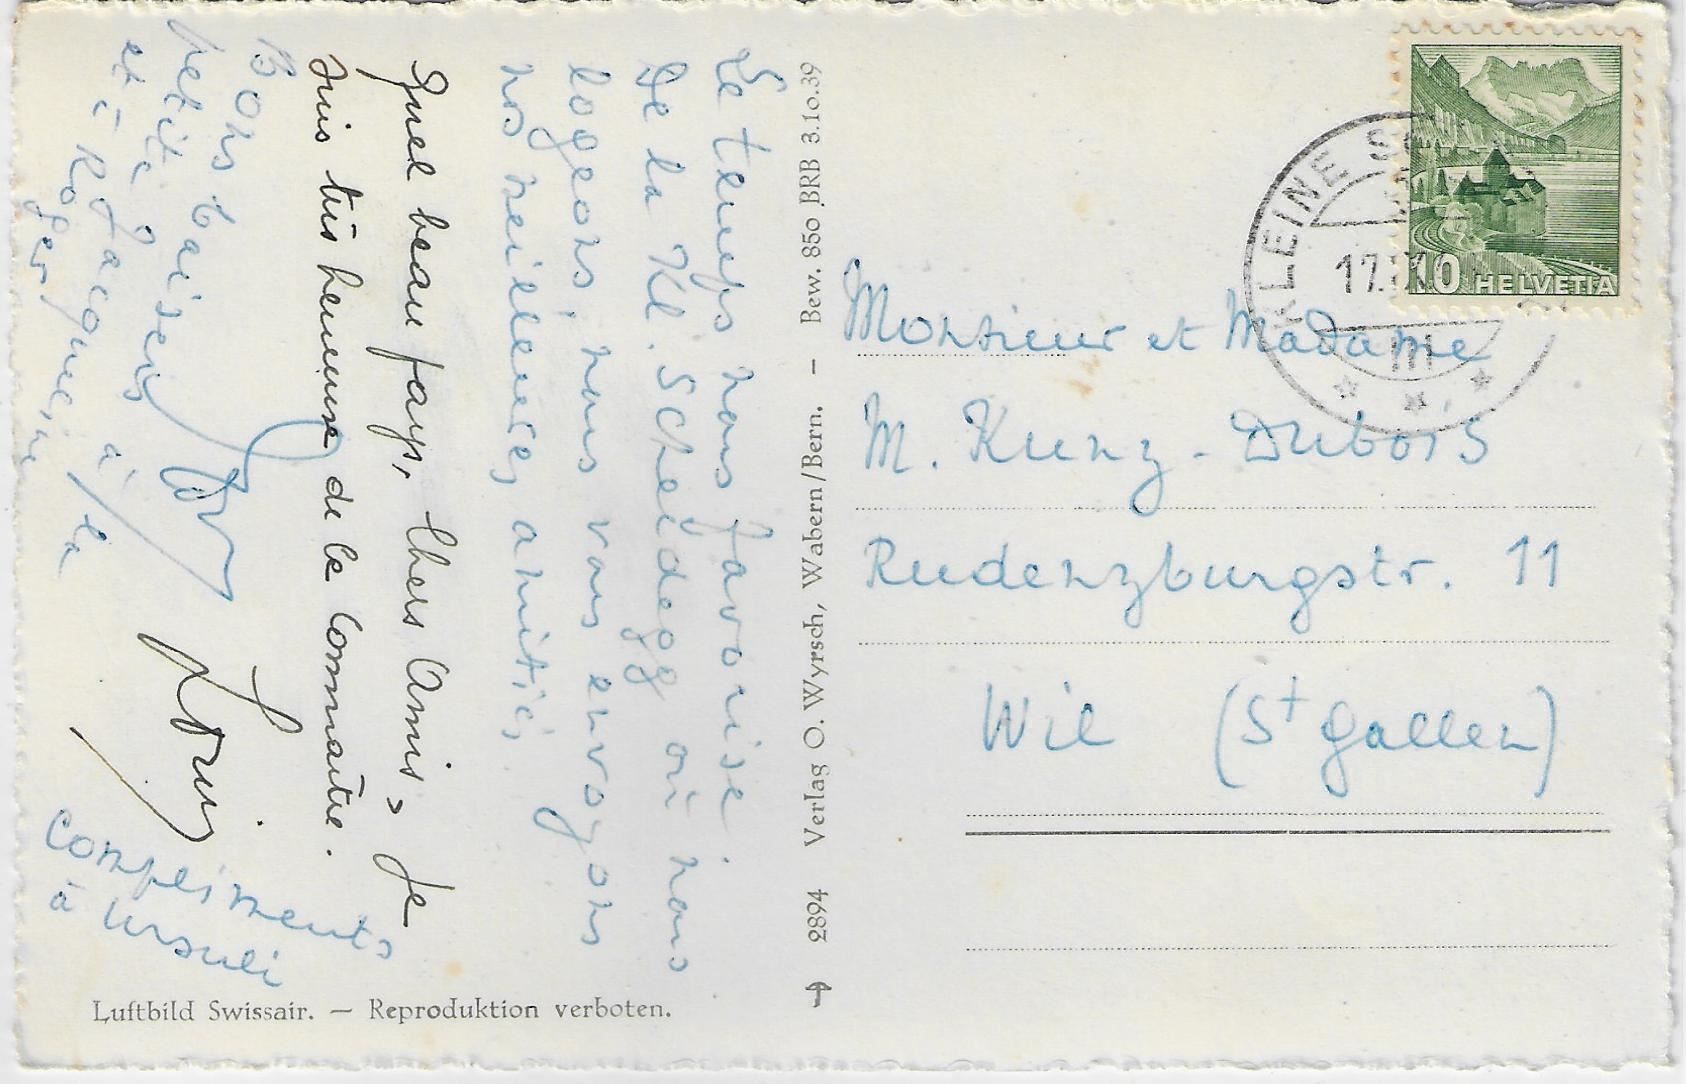 Le temps nous favorise.
De la Kl. Scheidegg où nous
logeons, nous vous envoyons
nos meilleures amitiés.
Quel beau pays, chers Amis, Je
suis très heureuse de le connaître.
Bons baisers
petite à la
et à Jacqueline
et à Roger
Louis
compliments
à Ursuli
Luftbild Swissair. — Reproduktion verboten.
2894 Verlag O. Wyrsch, Wabern/Bern. — Bew. 850 BRB 3.10.39
10 HELVETIA
KLEINE
17.
III
Monsieur et Madame
M. Kunz-Dubois
Rudenzburgstr. 11
Wil (St Gallen)